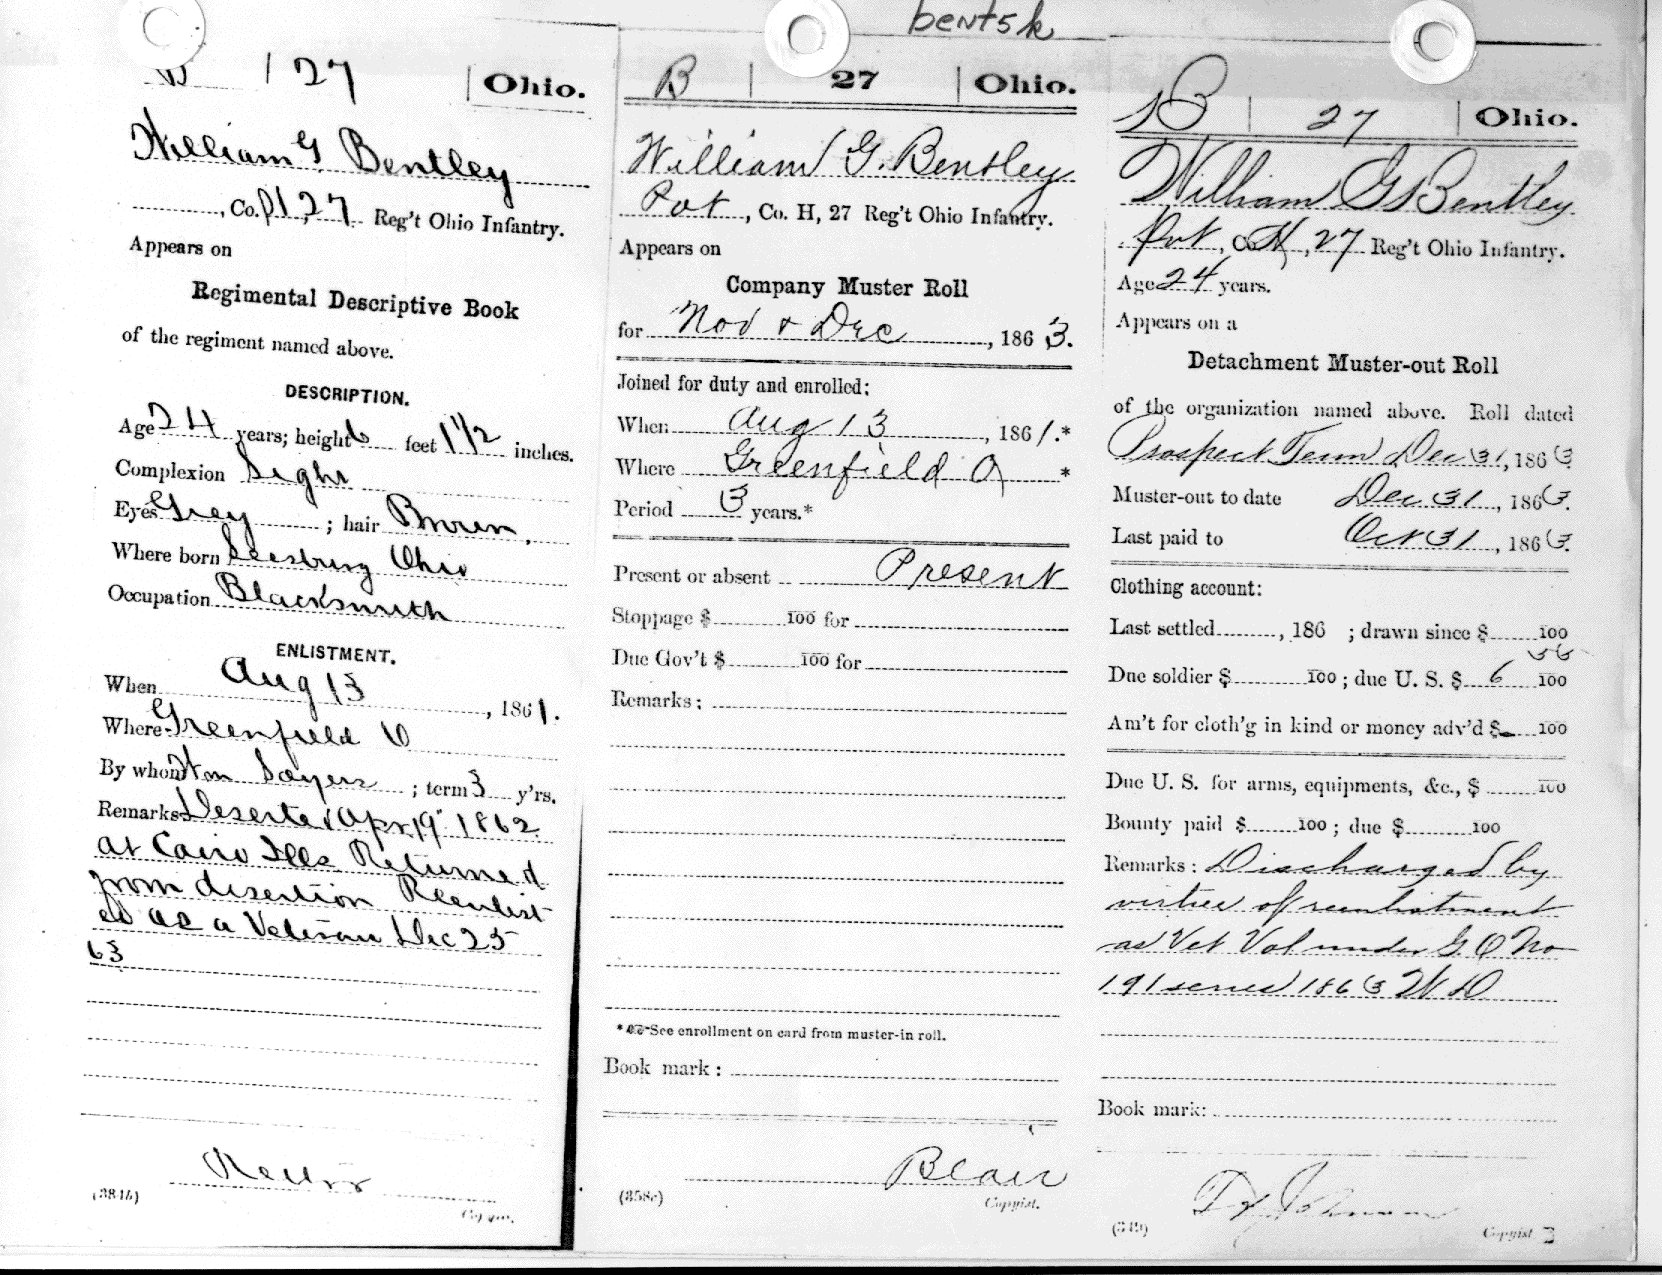 bent5k
B | 27 | Ohio.
William G Bentley
, Co. H, 27 Reg't Ohio Infantry.
Appears on
Regimental Descriptive Book
of the regiment named above.
DESCRIPTION.
Age 24 years; height 6 feet 1 1/2 inches.
Complexion Light
Eyes Grey ; hair Brown,
Where born Leesburg Ohio
Occupation Blacksmith
ENLISTMENT.
When Aug 13, 1861.
Where Greenfield O
By whom Wm Sayers ; term 3 y'rs.
Remarks Deserted Apr 19" 1862
at Cairo Ills Returned
from disertion Reenlist
ed as a Veteran Dec 25
63
(384b)
Copyist.
B | 27 | Ohio.
William G. Bentley
Pvt, Co. H, 27 Reg't Ohio Infantry.
Appears on
Company Muster Roll
for Nov & Dec, 1863.
Joined for duty and enrolled:
When Aug 13, 1861.*
Where Greenfield O *
Period 3 years.*
Present or absent Present
Stoppage $ 100 for
Due Gov't $ 100 for
Remarks:
* See enrollment on card from muster-in roll.
Book mark:
Blair
(358c) Copyist.
B | 27 | Ohio.
William G Bentley
Pvt, Co H, 27 Reg't Ohio Infantry.
Age 24 years.
Appears on a
Detachment Muster-out Roll
of the organization named above. Roll dated
Prospect Tenn Dec 31, 1863.
Muster-out to date Dec 31, 1863.
Last paid to Oct 31, 1863.
Clothing account:
Last settled, 186 ; drawn since $ 100
Due soldier $ 100; due U. S. $ 6 56/100
Am't for cloth'g in kind or money adv'd $ 100
Due U. S. for arms, equipments, &c., $ 100
Bounty paid $ 100; due $ 100
Remarks: Discharged by
virtue of reenlistment
as Vet Vol under G. O No
191 series 1863 W D
Book mark:
Johnson
(349) Copyist